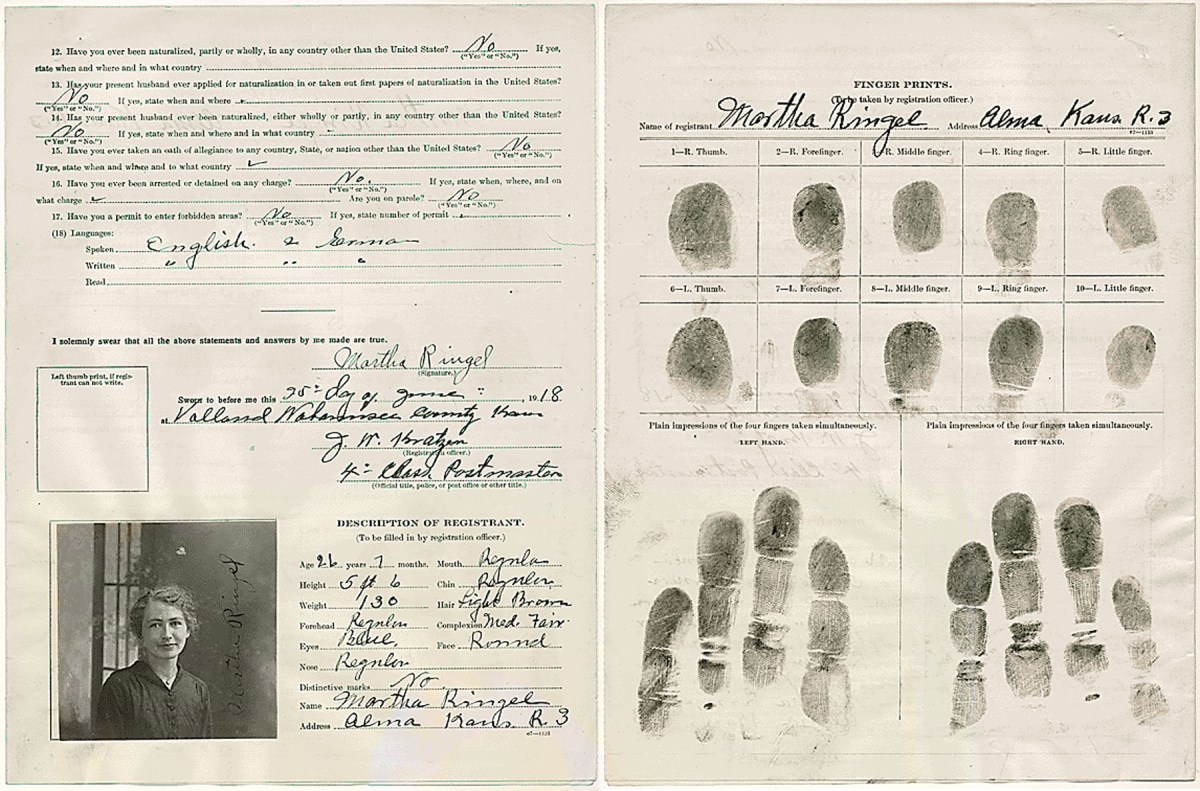 12. Have you ever been naturalized, partly or wholly, in any country other than the United States? No If yes,
("Yes" or "No.")
state when and where and in what country
13. Has your present husband ever applied for naturalization in or taken out first papers of naturalization in the United States?
No If yes, state when and where
("Yes" or "No.")
14. Has your present husband ever been naturalized, either wholly or partly, in any country other than the United States?
No If yes, state when and where and in what country
("Yes" or "No.")
15. Have you ever taken an oath of allegiance to any country, State, or nation other than the United States? No
("Yes" or "No.")
If yes, state when and where and to what country
16. Have you ever been arrested or detained on any charge? No. If yes, state when, where, and on
("Yes" or "No.")
what charge Are you on parole? No
("Yes" or "No.")
17. Have you a permit to enter forbidden areas? No If yes, state number of permit
("Yes" or "No.")
(18) Languages:
Spoken English. & German
Written " " "
Read
I solemnly swear that all the above statements and answers by me made are true.
Martha Ringel
(Signature.)
Left thumb print, if regis-
trant can not write.
Sworn to before me this 25th day of June, 1918
at Volland Wabaunsee County Kans
J. W. Kratzer
(Registration officer.)
4th Class Postmaster
(Official title, police, or post office or other title.)
Martha Ringel
DESCRIPTION OF REGISTRANT.
(To be filled in by registration officer.)
Age 26 years 7 months. Mouth Regular
Height 5 ft 6 Chin Regular
Weight 130 Hair Light Brown
Forehead Regular Complexion Med. Fair.
Eyes Blue, Face Round
Nose Regular
Distinctive marks No
Name Martha Ringel
Address Alma Kans R. 3
67—1133
FINGER PRINTS.
(To be taken by registration officer.)
Name of registrant Martha Ringel Address Alma, Kans R. 3
67—1133
1—R. Thumb. 2—R. Forefinger. 3—R. Middle finger. 4—R. Ring finger. 5—R. Little finger.
6—L. Thumb. 7—L. Forefinger. 8—L. Middle finger. 9—L. Ring finger. 10—L. Little finger.
Plain impressions of the four fingers taken simultaneously. Plain impressions of the four fingers taken simultaneously.
LEFT HAND. RIGHT HAND.